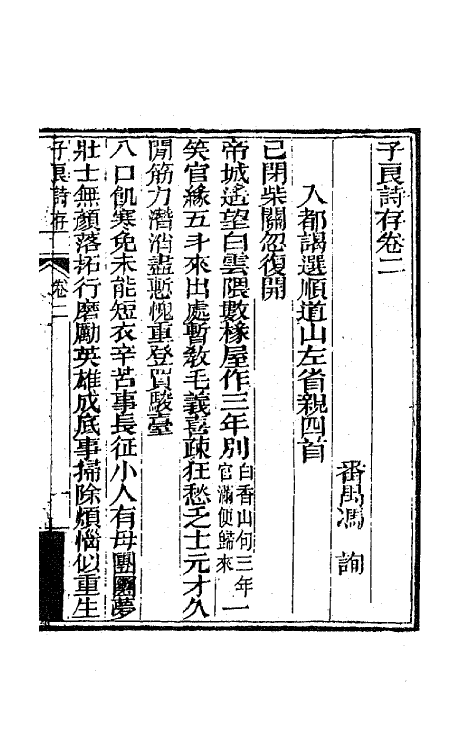 子良詩存卷二
番禺馮 詢
入都謁選順道山左省親四首
已閉柴關忽復開
帝城遙望白雲隈數椽屋作三年別白香山句三年官滿便歸來一
笑官緣五斗來出處暫教毛義喜疎狂愁乏士元才久
閒筋力潛消盡慙愧重登買駿臺
八口飢寒免未能短衣辛苦事長征小人有母團圞夢
壯士無顏落拓行磨勵英雄成底事掃除煩惱似重生
子良詩存 卷二